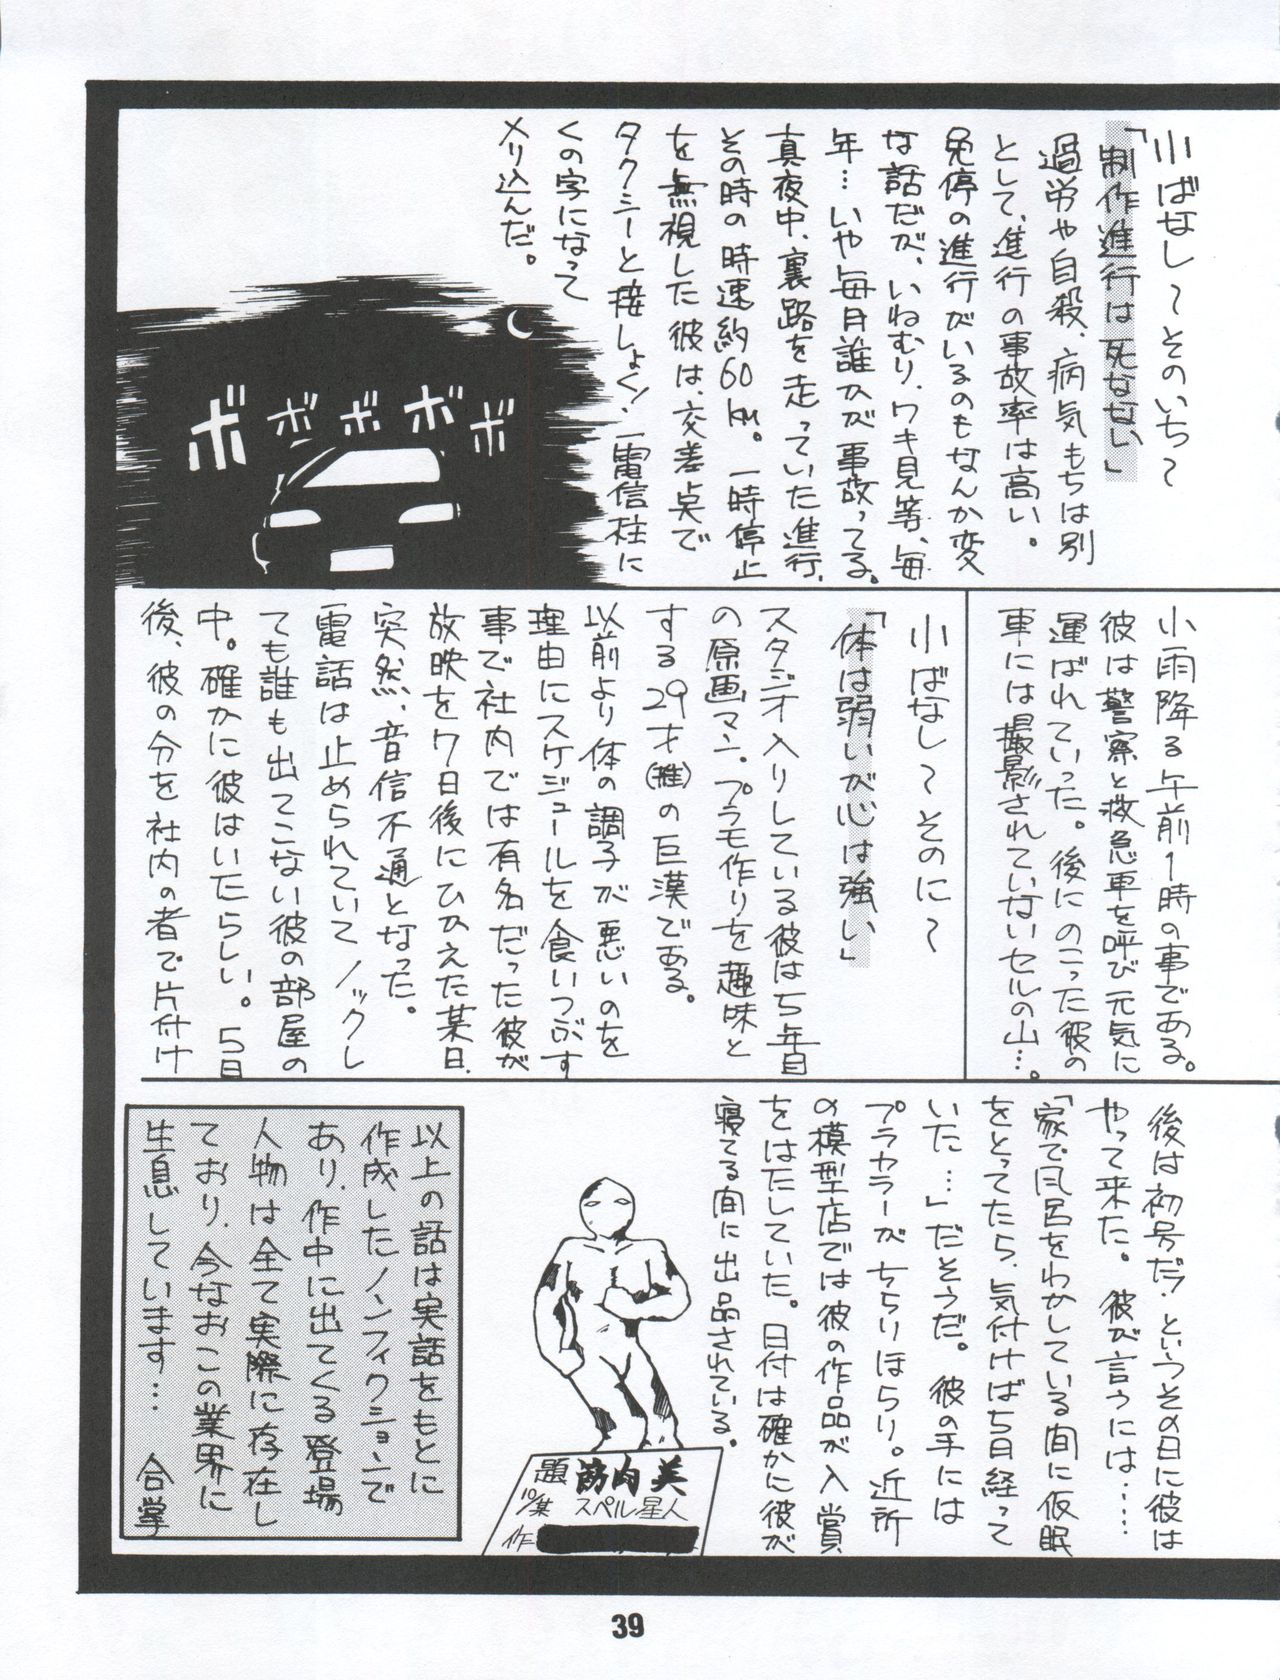 小ばなし〜そのいち〜
「制作進行は死なない」
過労や自殺、病気もちは別
として、進行の事故率は高い。
免停の進行がいるのもなんか変
な話だが、いねむり、ワキ見等、毎
年…いや毎月誰かが事故ってる。
真夜中、裏路を走っていた進行、
その時の時速約60km。一時停止
を無視した彼は、交差点で
タクシーと接しょく!電信柱に
くの字になって
メリ込んだ。
ボ
ボ
ボ
ボ
ボ
小雨降る午前1時の事である。
彼は警察と救急車を呼び元気に
運ばれていった。後にのこった彼の
車には撮影されていないセルの山…。
小ばなし〜そのに〜
「体は弱いが心は強い」
スタジオ入りしている彼は5年目
の原画マン。プラモ作りを趣味と
する29才(推)の巨漢である。
以前より体の調子が悪いのを
理由にスケジュールを食いつぶす
事で社内では有名だった彼が
放映を7日後にひかえた某日、
突然、音信不通となった。
電話は止められていてノックし
ても誰も出てこない彼の部屋の
中。確かに彼はいたらしい。5日
後、彼の分を社内の者で片付け
後は初号だ!というその日に彼は
やって来た。彼が言うには……
「家で風呂をわかしている間に仮眠
をとってたら、気付けば5日経って
いた…」だそうだ。彼の手には
プラカラーがちらりほらり。近所
の模型店では彼の作品が入賞
をはたしていた。日付は確かに彼が
寝てる間に出品されている。
題 筋肉美
10/某 スペル星人
作
以上の話は実話をもとに
作成したノンフィクションで
あり、作中に出てくる登場
人物は全て実際に存在し
ており、今なおこの業界に
生息しています… 合掌
39